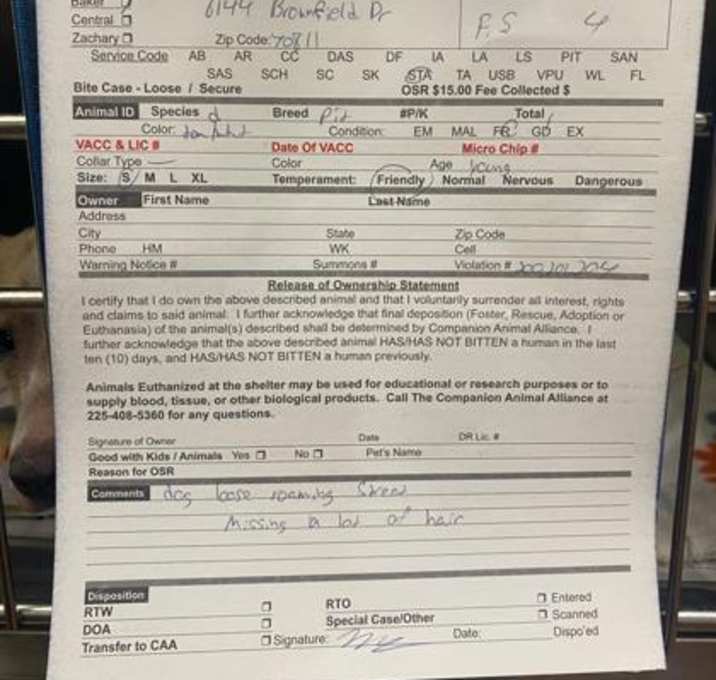 Baker
Central 6144 Brownfield Dr P.S 4
Zachary Zip Code: 70811
Service Code AB AR CC DAS DF IA LA LS PIT SAN
SAS SCH SC SK STA TA USB VPU WL FL
Bite Case - Loose / Secure OSR $15.00 Fee Collected $
Animal ID Species d Breed Pit #P/K Total
Color: Condition: EM MAL FR GD EX
VACC & LIC # Date Of VACC Micro Chip #
Collar Type — Color Age young
Size: S M L XL Temperament: Friendly Normal Nervous Dangerous
Owner First Name Last Name
Address
City State Zip Code
Phone HM WK Cell
Warning Notice # Summons # Violation #
Release of Ownership Statement
I certify that I do own the above described animal and that I voluntarily surrender all interest, rights
and claims to said animal. I further acknowledge that final deposition (Foster, Rescue, Adoption or
Euthanasia) of the animal(s) described shall be determined by Companion Animal Alliance. I
further acknowledge that the above described animal HAS/HAS NOT BITTEN a human in the last
ten (10) days, and HAS/HAS NOT BITTEN a human previously.
Animals Euthanized at the shelter may be used for educational or research purposes or to
supply blood, tissue, or other biological products. Call The Companion Animal Alliance at
225-408-5360 for any questions.
Signature of Owner Date DR Lic. #
Good with Kids / Animals Yes No Pet's Name
Reason for OSR
Comments dog loose roaming
Missing a lot of hair
Disposition
RTW RTO Entered
DOA Special Case/Other Scanned
Transfer to CAA Signature: Date: Dispo'ed